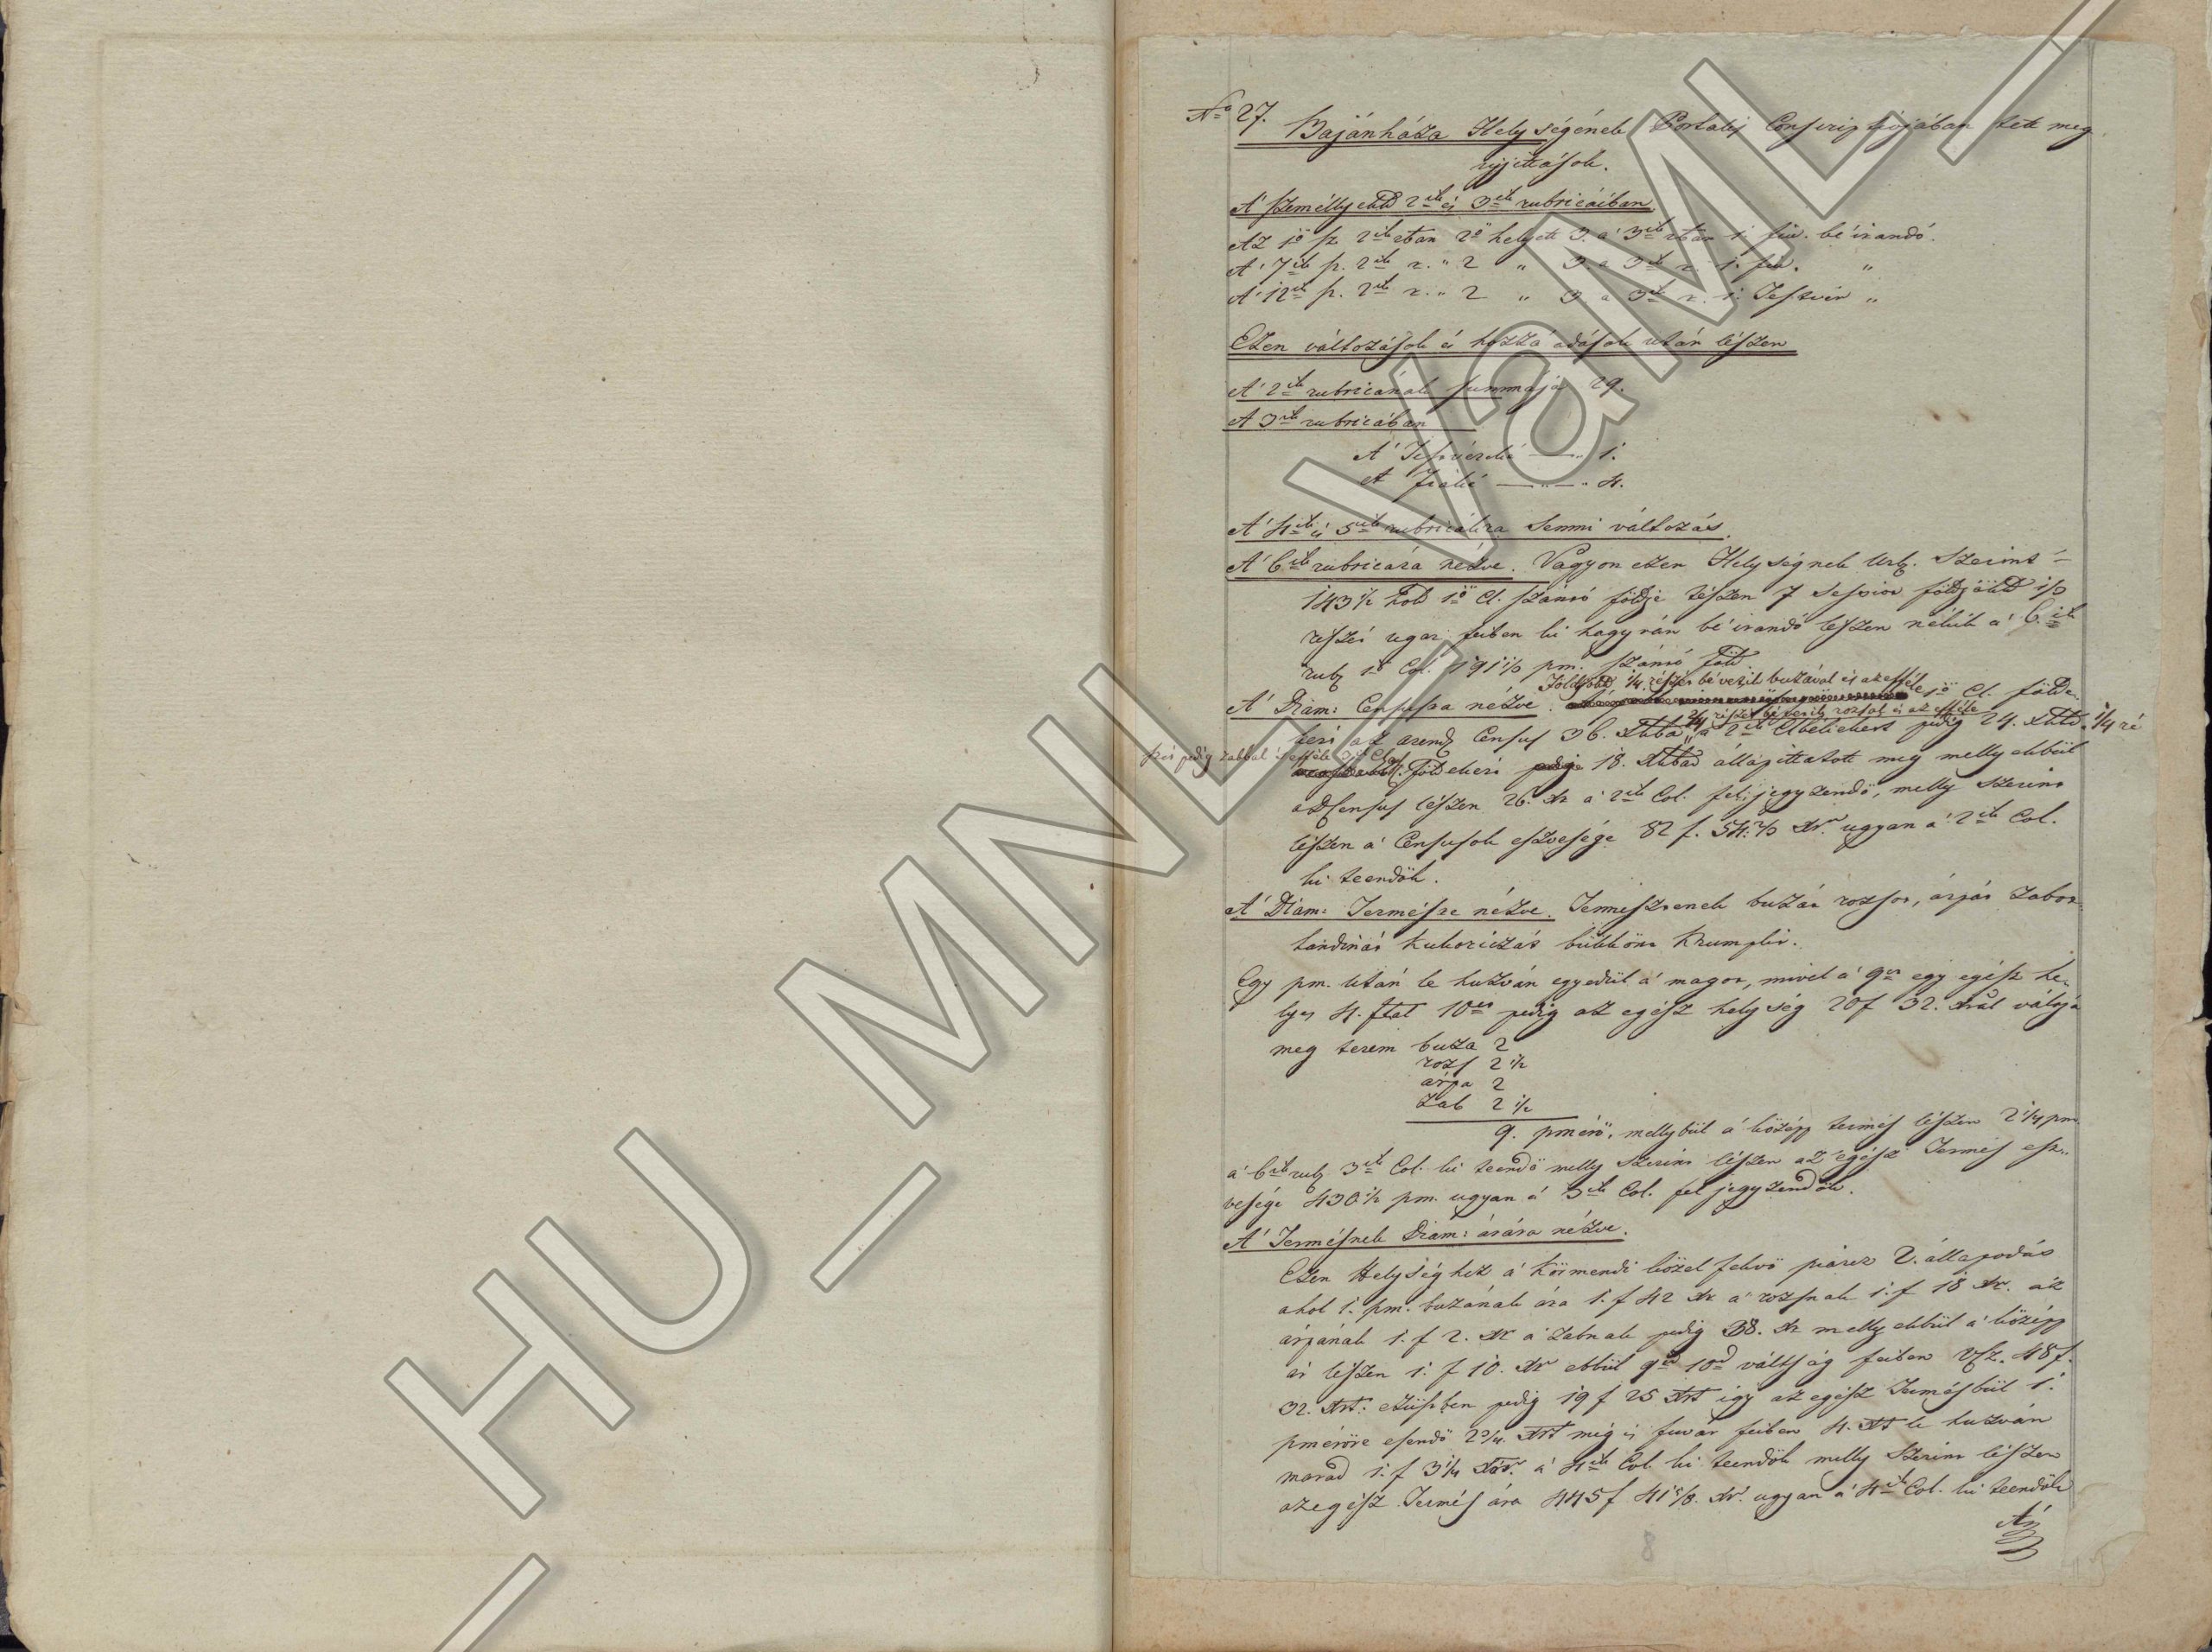 No 27. Bajánháza Helységének Portalis Conscriptiojában tett meg
ujjitások.
A' személlyekk 2ik és 3ik rubricáiban
Az 1ső sz. 2ik rban 2ő helyett 3. a' 3ik rban 1. fiu. bé irandó.
A' 7ik sz. 2ik r. „ 2 „ 3. a 3ik r. 1. fiu. „
A' 12ik sz. 2ik r. „ 2 „ 3. a 3ik r. 1. Testvér „
Ezen változások és hozzá adások után lészen
A' 2ik rubricának summája 29.
A 3ik rubricában
A' Testvéreké — „ 1.
A Fiaké — „ — „ 4.
A' 4ik és 5ik rubricákra semmi változás.
A' 6ik rubricára nézve. Vagyon ezen Helységnek Urb. szerint
143 1/2 hold 1ső Cl. szántó földje tészen 7 Sessiot földjökk 1/3
részét ugar fejben ki hagyván bé irandó lészen nékik a' 6.ik
rub 1ső Col. 191 1/3 pm. szántó föld.
Földjökk 1/4 részét bé vetik buzával és az efféle
A' Diam: Censusra nézve. 1ső Cl. földe
2/4 részét bé vetik rozsal és az efféle
kert az arend Census 36. Xrba, a 2ik Cl. belieket pedig 24. Xrba 1/4 ré
szét pedig zabbal s efféle 3ik Class.
földekert 18. Xrbad állapittatott meg mellyekbül
a D Census lészen 26. Xr a 2ik Col. fel jegyzendő, melly szerint
lészen a' Censusok eszvesége 82 f. 54. 2/3 Xr. ugyan a' 2ik Col.
ki teendők.
A' Diam: Termésre nézve. Termesztenek buzát rozsot, árpát zabot
handinát Kukoriczát bükkönt Krumplit.
Egy pm. után le huzván egyedül a' magot, mivel a' 9et egy egész he„
lyes 4. ftal 10et pedig az egész helység 20 f 32. Xral váltja
meg terem buza 2
rozs 2 1/2
árpa 2
Zab 2 1/2
9. pmérő, mellybül a' közép termés lészen 2 1/4 pm
a' 6ik rub 3ik Col. ki teendő melly szerint lészen az egész Termés esz„
vesége 430 1/2 pm. ugyan a' 3ik Col. fel jegyzendők.
A' Termésnek Diam: árára nézve.
Ezen Helységhez a' Körmendi közel fekvő piarcz 2. állapodás
ahol 1. pm. buzának ára 1. f 42 Xr a' rozsnak 1. f 18 Xr. az
árpának 1. f 2. Xr a' zabnak pedig 38. Xr mellyekbül a' közép
ár lészen 1. f 10. Xr ebbül 9ed 10ed váltság fejben 48 f.
32. Xrt. ezüstben pedig 19 f 25 Xrt igy az egész Termésbül 1.
pmérőre esendő 2 3/4. Xrt még is fuvar fejben 4. Xrt le huzván
marad 1. f 3 1/4 Xr. a' 4ik Col. ki teendők melly szerint lészen
azegész Termés ára 445 f 41 Xr. ugyan a' 4ik Col. ki teendők
Az
8
HU_MNL_VaML_